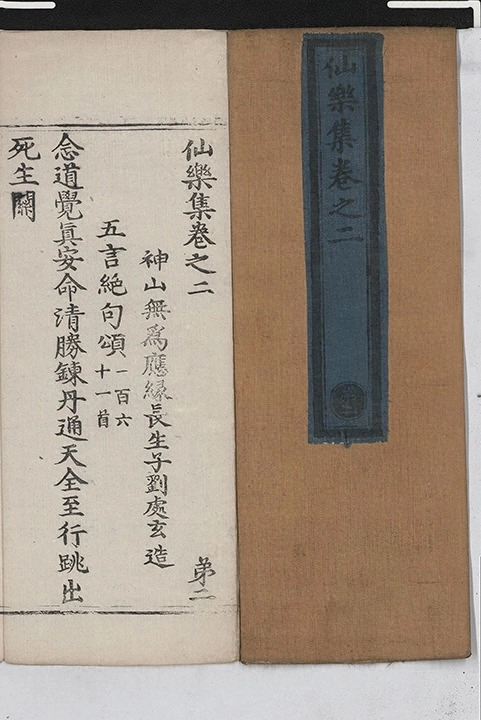 仙樂集卷之二
仙樂集卷之二 弟二
神山無爲應緣長生子劉處玄造
五言絶句頌 一百六十一首
念道覺眞安命清勝鍊丹通天全至行跳出
死生關